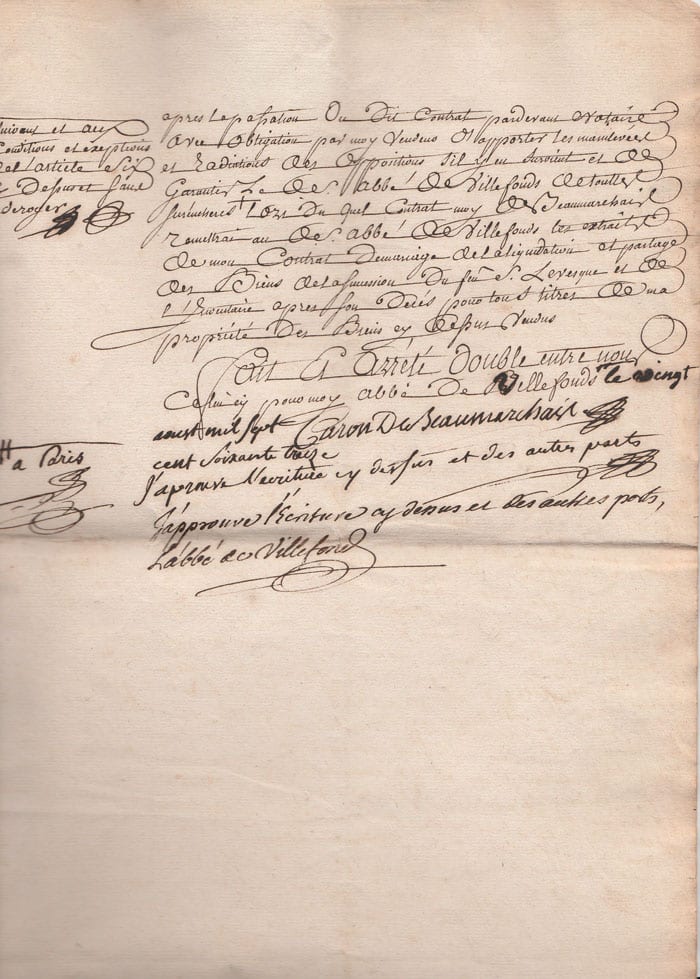 suivant et aux
Conditions et exceptions
de l'article six
cy Dessus et sans
deroger
apres la passation Du Dit Contrat pardevant notaire
avec obligation par moy vendeur D'apporter les mainlevées
et Radiations des oppositions s'il y en survient et de
Garantir Le de S. abbé de Villefonds de toutes
surencheres + Lors Du quel Contrat moy de Beaumarchais
remettrai au de S. abbé de Villefonds les extraits
de mon Contrat Demariage de la liquidation et partage
des Biens de la succession Du feu S. Levesque et de
l'Inventaire apres son Deces pour tous titres de ma
propriété Des Biens cy dessus vendus
Fait et Arrêté Double entre nous
Celui cy pour moy abbé De Villefonds le vingt
aoust mil sept
Caron De Beaumarchais
cent soixante treize
H a Paris
J'aprouve l'ecriture cy dessus et des autres parts
J'approuve l'Ecriture cy dessus et des autres parts,
L'abbé de Villefond